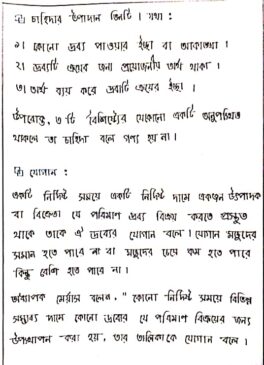 চাহিদার উপাদান তিনটি। যথা:
১। কোনো দ্রব্য পাওয়ার ইচ্ছা বা আকাঙ্ক্ষা।
২। দ্রব্যটি ক্রয়ের জন্য প্রয়োজনীয় অর্থ থাকা।
৩। অর্থ ব্যয় করে দ্রব্যটি ক্রয়ের ইচ্ছা।
উপরোক্ত, ৩ টি বৈশিষ্ট্যের যেকোনো একটি অনুপস্থিত
থাকলে তা চাহিদা বলে গণ্য হয় না।
যোগান:
একটি নির্দিষ্ট সময়ে একটি নির্দিষ্ট দামে একজন উৎপাদক
বা বিক্রেতা যে পরিমাণ দ্রব্য বিক্রয় করতে প্রস্তুত
থাকে তাকে ঐ দ্রব্যের যোগান বলে। যোগান মজুদের
সমান হতে পারে বা মজুদের চেয়ে কম হতে পারে
কিন্তু বেশি হতে পারে না।
অধ্যাপক মেয়ার্স বলেন, " কোনো নির্দিষ্ট সময়ে বিভিন্ন
সম্ভাব্য দামে কোনো দ্রব্যের যে পরিমাণ বিক্রয়ের জন্য
উপস্থাপন করা হয়, তার তালিকাকে যোগান বলে।